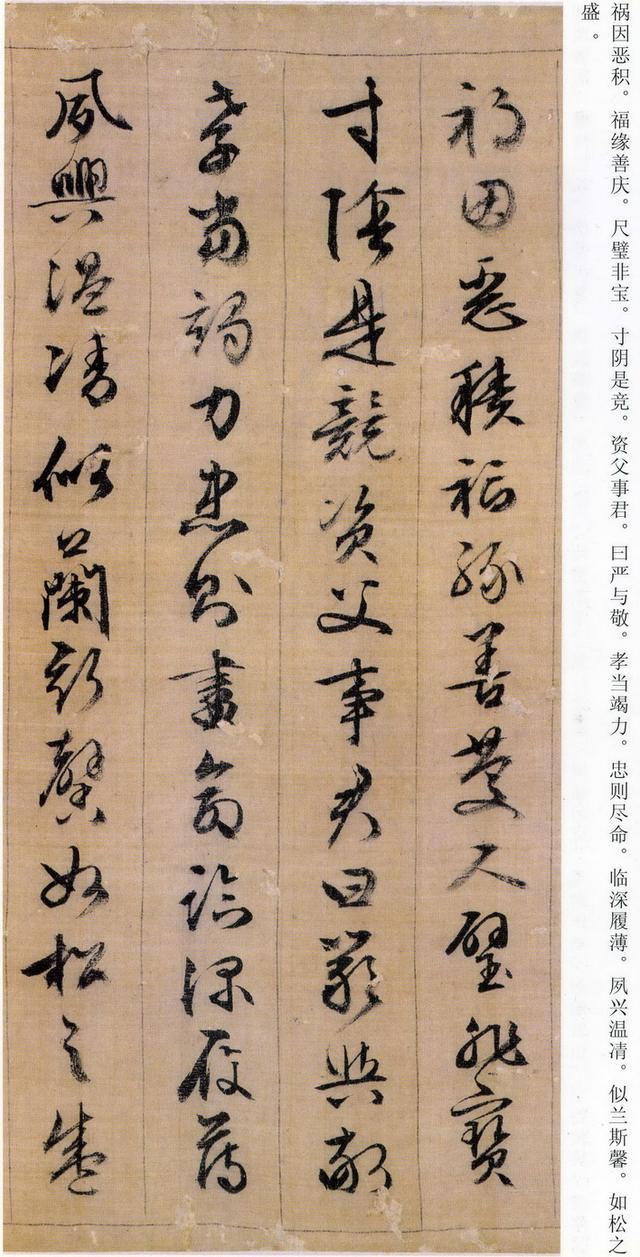 祸因恶积。福缘善庆。尺璧非宝。寸阴是竞。资父事君。曰严与敬。孝当竭力。忠则尽命。临深履薄。夙兴温凊。似兰斯馨。如松之
盛。
禍因惡積福緣善慶尺璧非寶
寸陰是競資父事君曰嚴與敬
孝當竭力忠則盡命臨深履薄
夙興温凊似蘭斯馨如松之盛